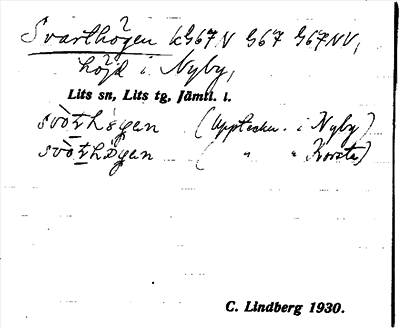 Svarthögen kG67N G67 G67NV,
höjd i Nyby,
Lits sn, Lits tg, Jämtl. l.
svòṯhögen (Uppteckn. i Nyby)
svòṯhögen ( " " Korsta)
C. Lindberg 1930.